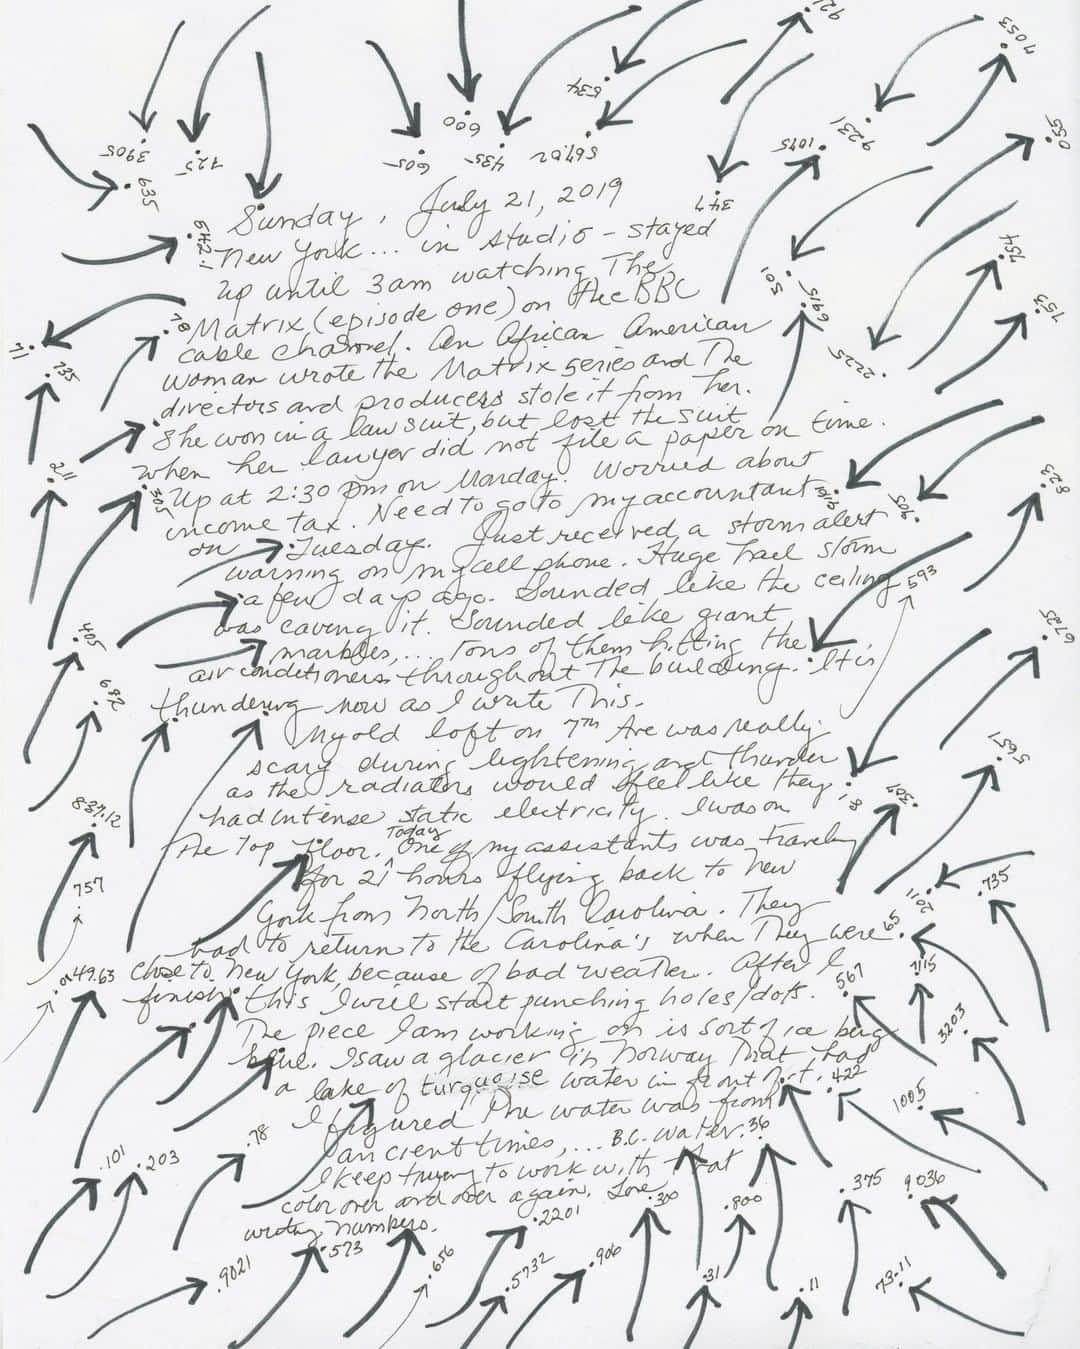 Sunday, July 21, 2019
New York... in studio - stayed
up until 3am watching The
Matrix (episode one) on the BBC
cable channel. An African American
woman wrote the Matrix series and The
directors and producers stole it from her.
She won in a law suit, but lost the suit
when her lawyer did not file a paper on time.
Up at 2:30 pm on Monday. Worried about
income tax. Need to go to my accountant
on Tuesday. Just received a storm alert
warning on my cell phone. Huge hail storm
a few days ago. Sounded like the ceiling
was caving it. Sounded like giant
marbles,... Tons of them hitting the
air conditioners throughout The building. It is
thundering now as I write This.
My old loft on 7th Ave was really
scary during lightening and thunder
as the radiators would feel like they
had intense static electricity. I was on
The Top floor. Today One of my assistants was traveling
for 21 hours flying back to New
York from North/South Carolina. They
had to return to the Carolina's when They were
close to New York, because of bad weather. After I
finish this I will start punching holes/dots.
The piece I am working on is sort of ice berg
blue. I saw a glacier in Norway That had
a lake of turquoise water in front of it.
I figured The water was from
ancient times,... B.C. water.
I keep trying to work with that
color over and over again. Love
writing numbers.
600
534
435
605
725
3905
635
347
1075
9231
7053
055
642.1
501
6915
754
753
2225
78
11
735
211
305
905
823
593
405
682
6725
5651
8.1
307
837.12
757
201
735
65
49.63
567
7115
3203
422
1005
36
101
203
78
375
9036
300
800
2201
573
9021
656
5732
906
31
11
73.11